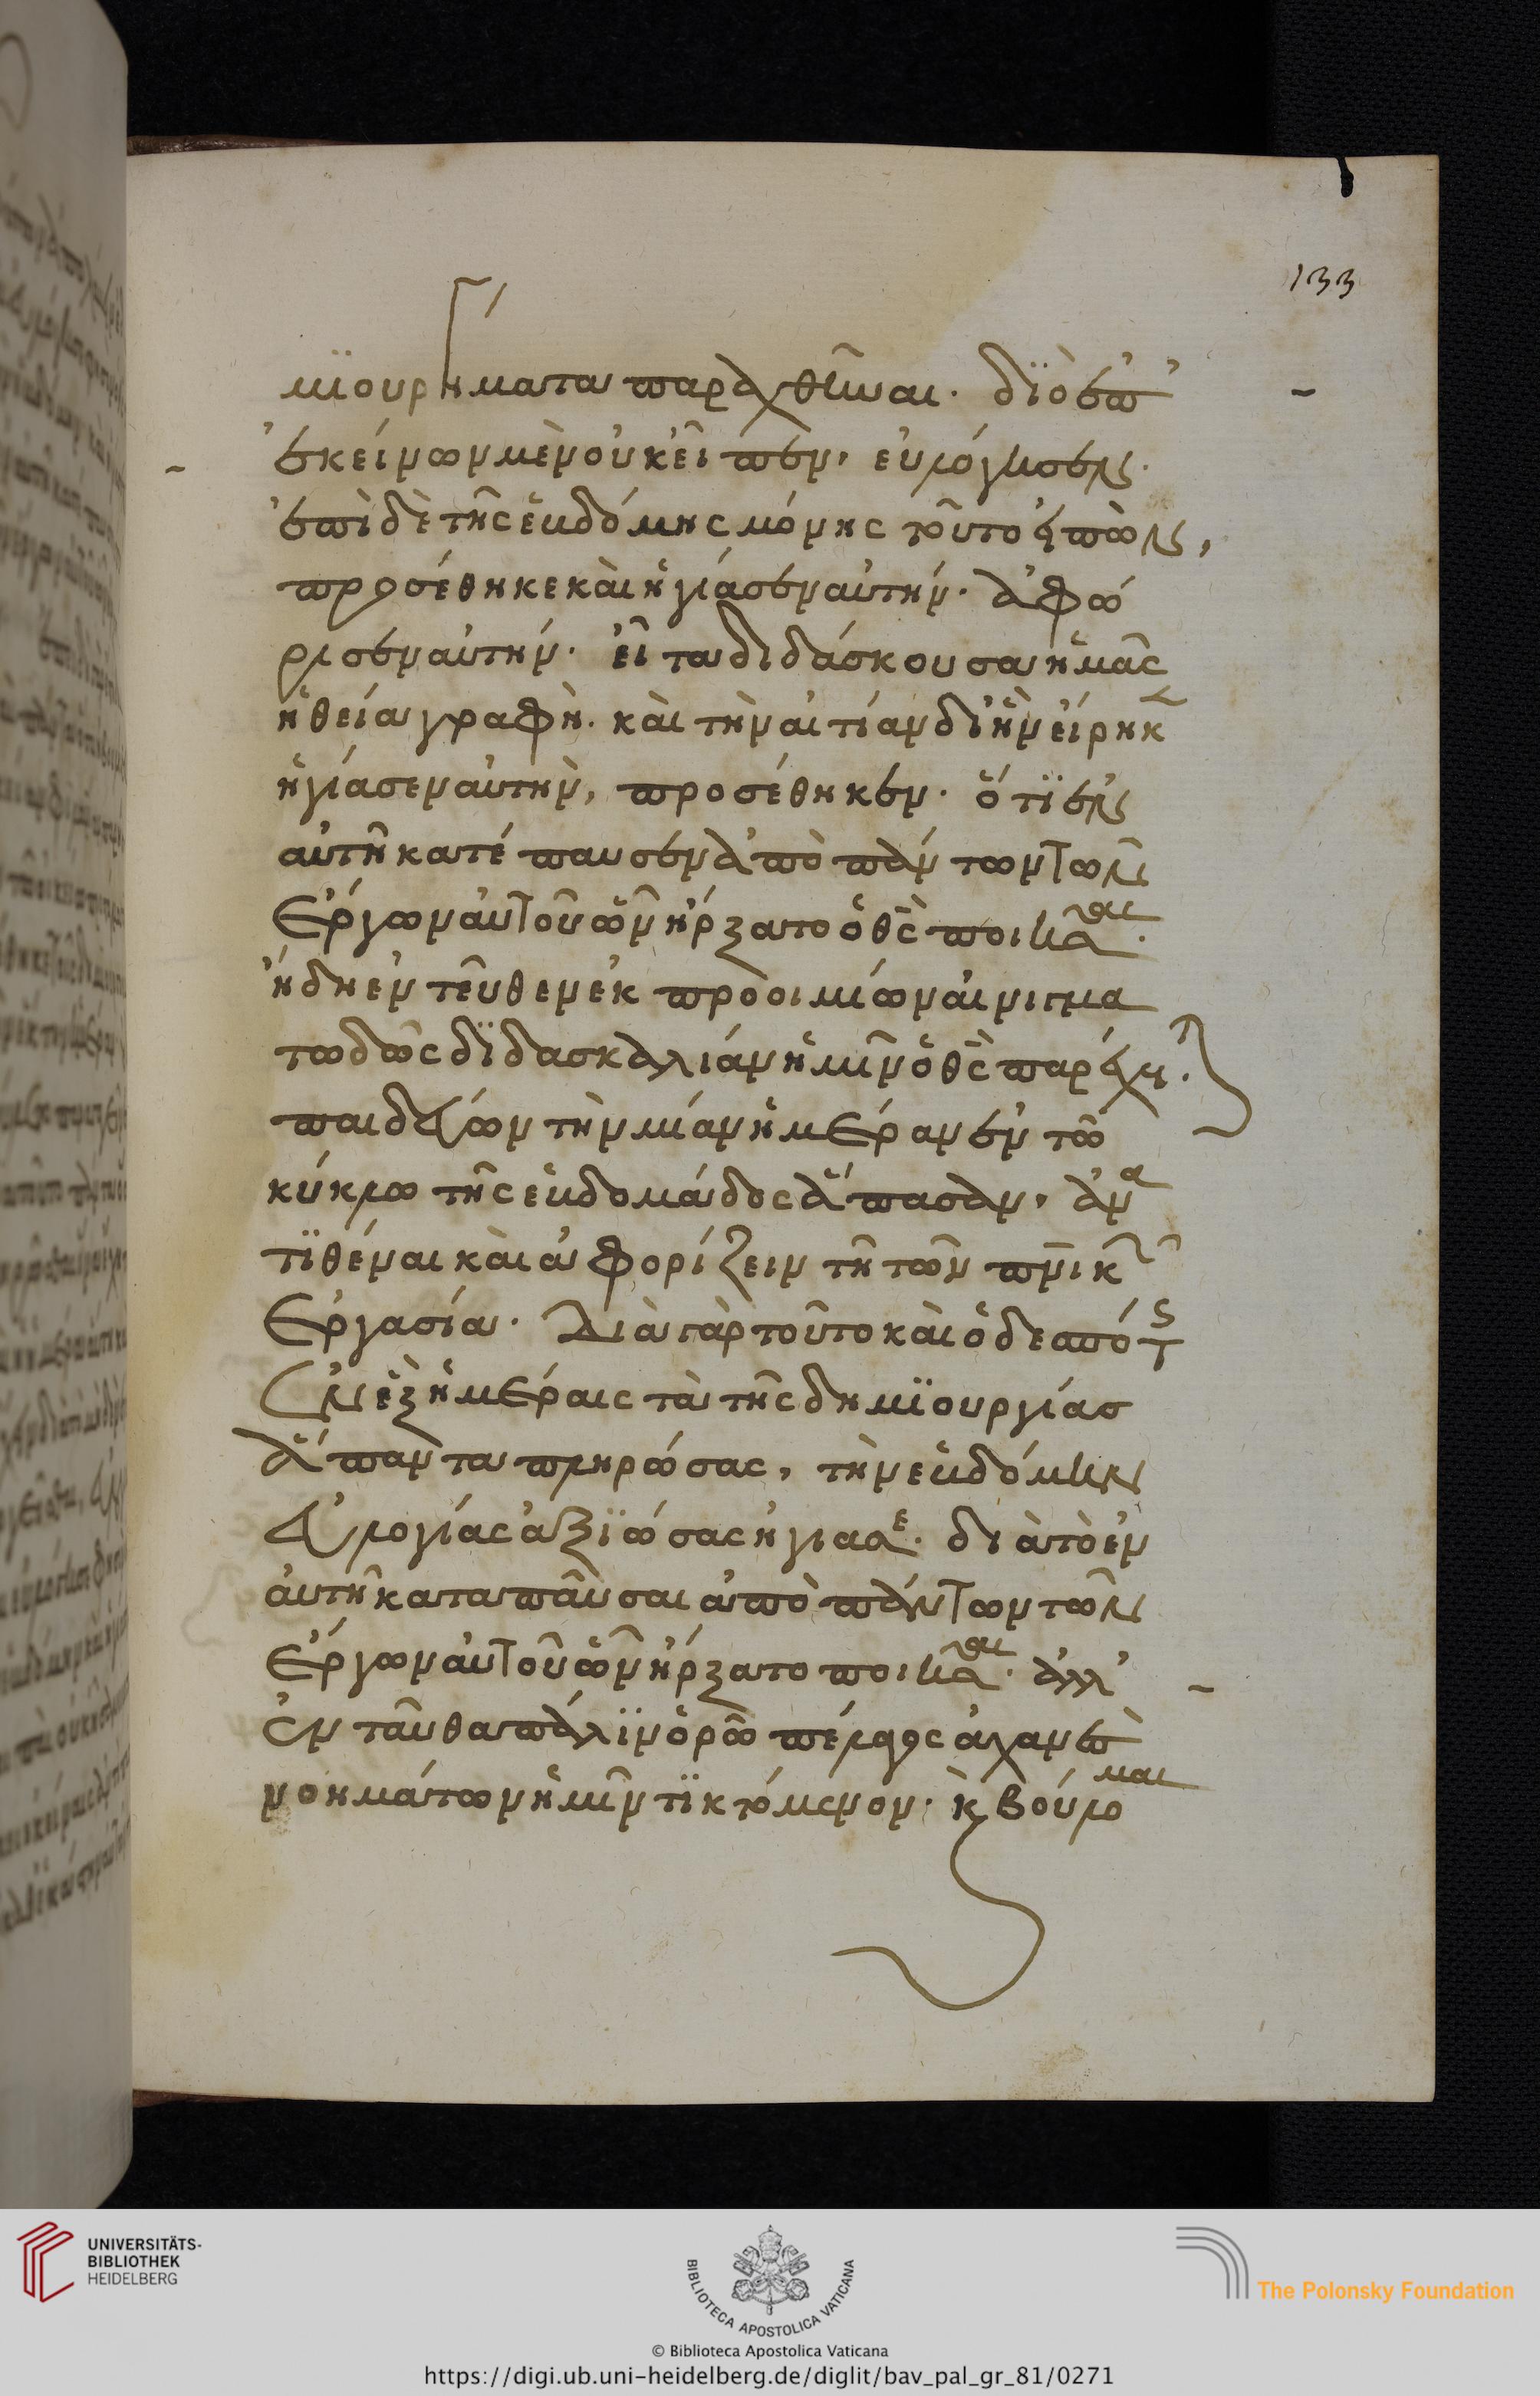 133
μϊουργήματα παραχθῆναι. διὸ ἐπ'
ἐκείνων μὲν οὐκ εἶπεν, εὐλόγησεν.
ἐπὶ δὲ τῆς ἑβδόμης μόνης τοῦτο εἰπὼν,
προσέθηκε καὶ ἡγίασεν αὐτήν. ἀφώ
ρισεν αὐτήν. εἶτα διδάσκουσα ἡμᾶς
ἡ θεία γραφὴ. καὶ τὴν αἰτίαν δι' ἣν εἴρηκ
ἡγίασεν αὐτὴν, προσέθηκεν. ὅτϊ ἐν
αὐτῆ κατέπαυσεν ἀπὸ πάντων τῶν
ἔργων αὐτοῦ ὧν ἤρξατο ὁ θς ποιῆσαι.
ἤδη ἐντεῦθεν ἐκ προοιμίων αἰνιγμα
τωδῶς διδασκαλίαν ἡμῖν ὁ θς παρέχει.
παιδεύων τὴν μίαν ἡμέραν ἐν τῶ
κύκλω τῆς ἑβδομάδος ἅπασαν, ἀνα
τϊθέναι καὶ ἀφορίζειν τῆ τῶν πνικῶν
ἐργασία. Διὰ γὰρ τοῦτο καὶ ὁ δεσπότης
ἐν ἓξ ἡμέραις τὰ τῆς δημϊουργίας
ἅπαντα πληρώσας, τὴν ἑβδόμην
εὐλογίας ἀξϊώσας ἡγίασε. διὰ τὸ ἐν
αὐτῆ καταπαῦσαι ἀπὸ πάντων τῶν
ἔργων αὐτοῦ ὧν ἤρξατο ποιῆσαι. ἀλλ'
ἐνταῦθα πάλϊν ὁρῶ πέλαγος ἀχανὲς
νοημάτων ἡμῖν τϊκτόμενον. κὶ βούλομαι
UNIVERSITÄTS-
BIBLIOTHEK
HEIDELBERG
BIBLIOTECA APOSTOLICA VATICANA
The Polonsky Foundation
© Biblioteca Apostolica Vaticana
https://digi.ub.uni-heidelberg.de/diglit/bav_pal_gr_81/0271